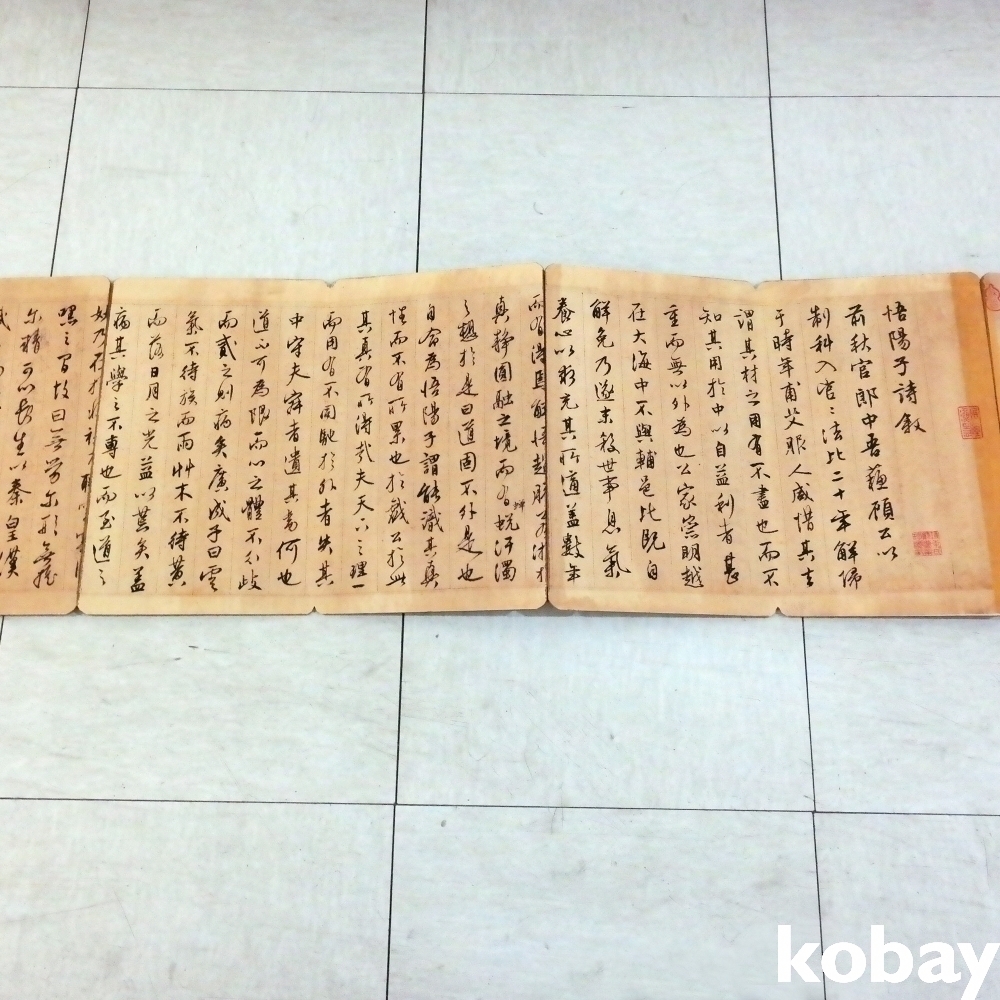 悟陽子詩敘
前秋官郎中吾蘇顧公以
制科入官二法比二十年解佩
于時年甫艾服人咸惜其去
謂其材之用有不盡也而不
知其用於中以自益利者甚
重而無以外為也公家崇明越
在大海中不與輔邑比既自
解免乃遂末殺世事息氣
養心以彩充其所道蓋數年
而有得焉解悟超脫
真靜圓融之境而有蛻汙濁
之趣於是曰道固不外是也
自命為悟陽子謂能識其真
性而不有所累也於戲公於此
其真有所得哉夫天下之理一
中守夫寂者遺其畫何也
而用有不周馳於外者失其
道不可為限而心之體不分歧
而貳之則病矣廣成子曰雲
氣不待族而雨艸木不待黃
而落日月之光益以荒矣蓋
病其學之不專也而至道之
妙乃在於
默之間故曰無勞尔形無搖
尔精可以長生以秦皇漢
kobay